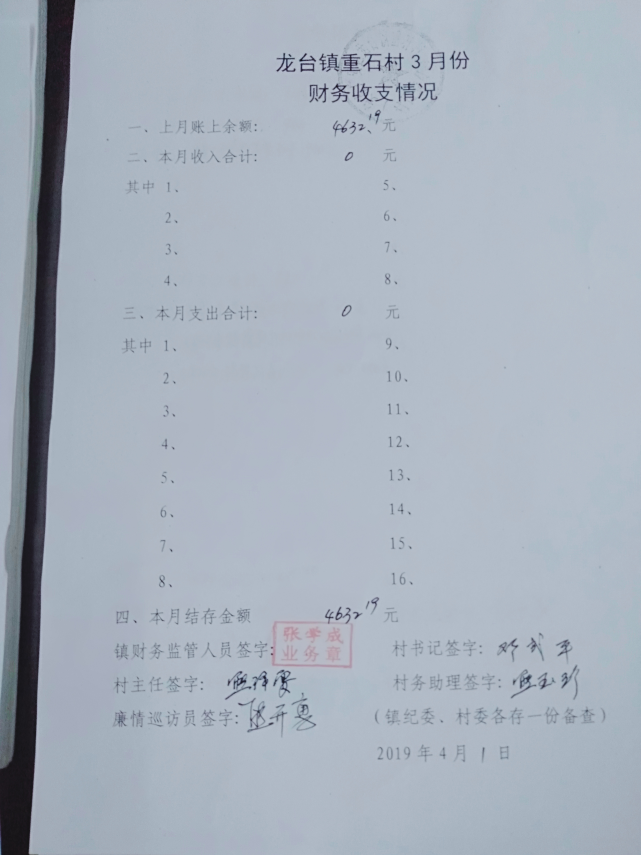 龙台镇重石村 3 月份
财务收支情况
一、上月账上余额: 4632.19 元
二、本月收入合计: 0 元
其中 1、 5、
2、 6、
3、 7、
4、 8、
三、本月支出合计: 0 元
其中 1、 9、
2、 10、
3、 11、
4、 12、
5、 13、
6、 14、
7、 15、
8、 16、
四、本月结存金额 4632.19 元
镇财务监管人员签字: 张学成 业务章 村书记签字:
村主任签字: 村务助理签字:
廉情巡访员签字: (镇纪委、村委各存一份备查)
2019 年 4 月 1 日